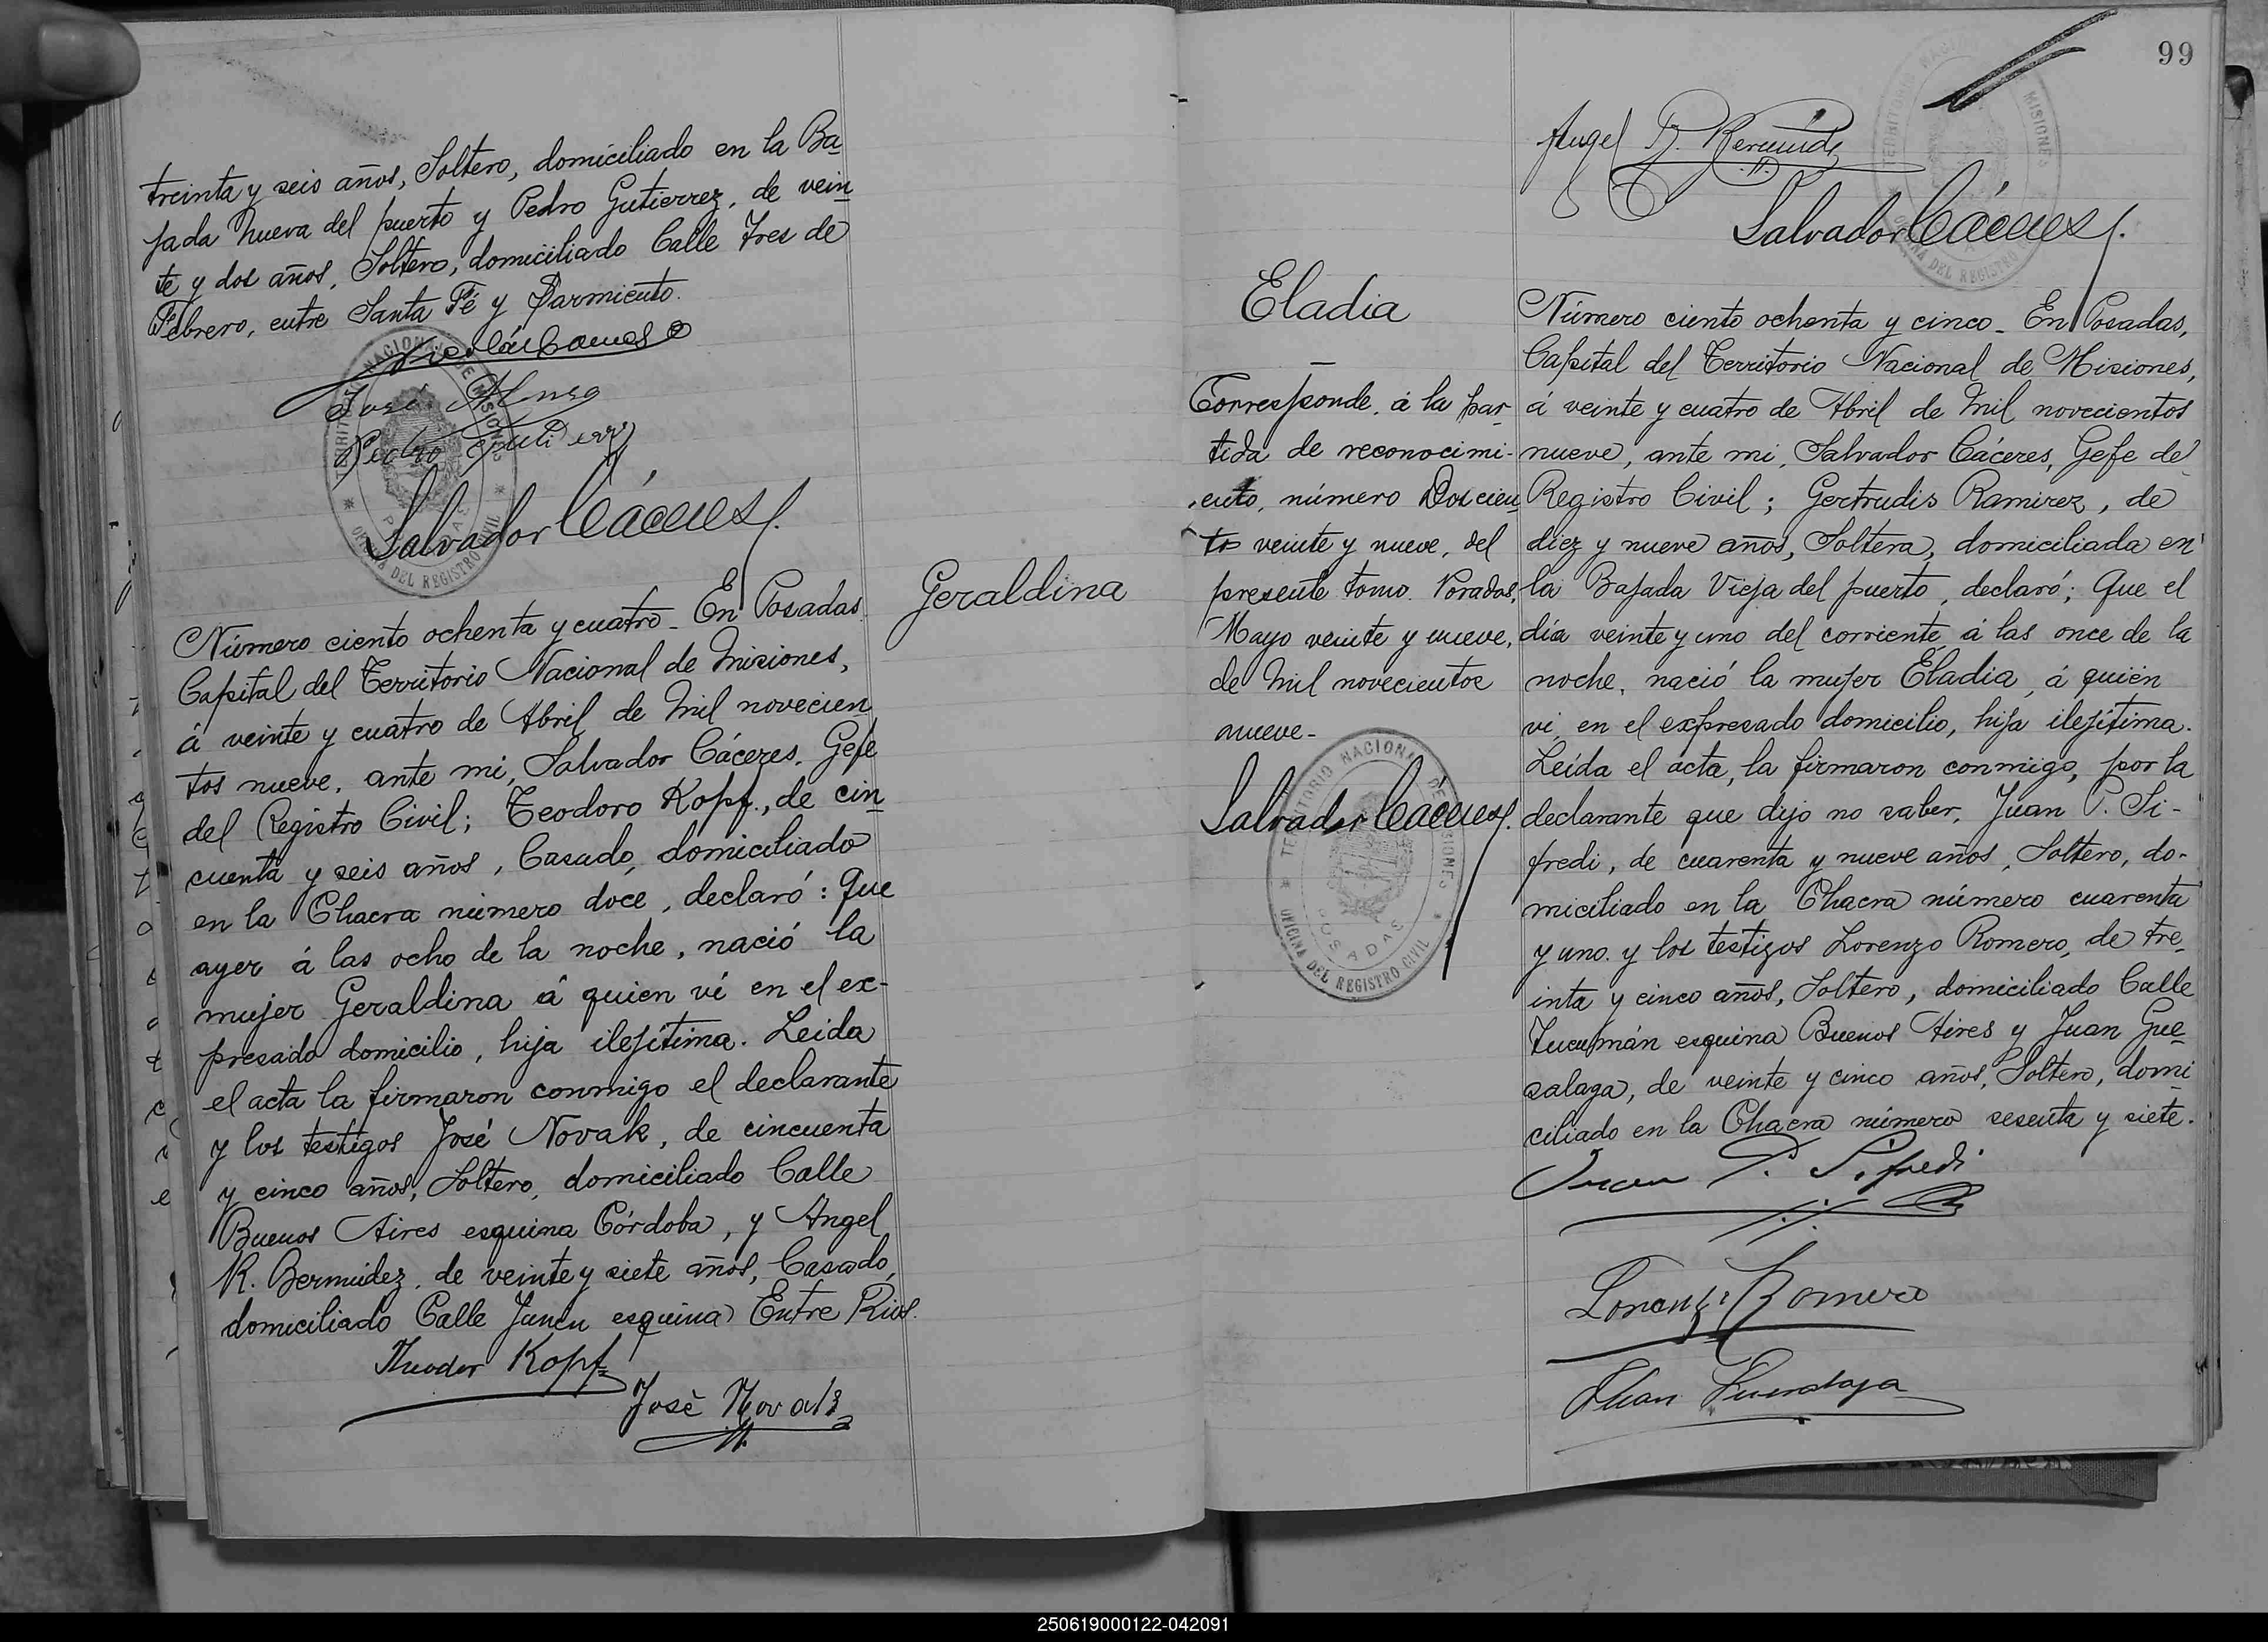 treinta y seis años, Soltero, domiciliado en la Ba-
jada Nueva del puerto y Pedro Gutierrez, de vein-
te y dos años, Soltero, domiciliado Calle Tres de
Febrero, entre Santa Fé y Sarmiento.
José Alonso
Pedro Gutierrez
Salvador Cáceres
Número ciento ochenta y cuatro - En Posadas,
Capital del Territorio Nacional de Misiones,
á veinte y cuatro de Abril de Mil novecien
tos nueve, ante mi, Salvador Cáceres, Gefe
del Registro Civil; Teodoro Kopf, de cin
cuenta y seis años, Casado, domiciliado
en la Chacra número doce, declaró: Que
ayer á las ocho de la noche, nació la
mujer Geraldina á quien ví en el ex-
presado domicilio, hija ilejítima. Leida
el acta la firmaron conmigo el declarante
y los testigos José Novak, de cincuenta
y cinco años, Soltero, domiciliado Calle
Buenos Aires esquina Córdoba, y Angel
R. Bermúdez, de veinte y siete años, Casado,
domiciliado Calle Junin esquina Entre Rios.
Theodor Kopf
José Novak
Geraldina
99
Angel R. Bermúdez
Salvador Cáceres
Eladia
Corresponde á la par-
tida de reconocimi-
ento, número Doscien
tos veinte y nueve, del
presente tomo. Posadas,
Mayo veinte y nueve,
de Mil novecientos
nueve-
Salvador Cáceres
TERRITORIO NACIONAL DE MISIONES
POSADAS
OFICINA DEL REGISTRO CIVIL
Número ciento ochenta y cinco - En Posadas,
Capital del Territorio Nacional de Misiones,
á veinte y cuatro de Abril de Mil novecientos
nueve, ante mi, Salvador Cáceres, Gefe del
Registro Civil; Gertrudis Ramirez, de
diez y nueve años, Soltera, domiciliada en
la Bajada Vieja del puerto, declaró; Que el
día veinte y uno del corriente á las once de la
noche, nació la mujer Eladia, á quien
vi, en el expresado domicilio, hija ilejítima.
Leída el acta, la firmaron conmigo, por la
declarante que dijo no saber, Juan P. Si-
fredi, de cuarenta y nueve años, Soltero, do-
miciliado en la Chacra número cuarenta
y uno. y los testigos Lorenzo Romero, de tre-
inta y cinco años, Soltero, domiciliado Calle
Tucumán esquina Buenos Aires y Juan Gue-
salaga, de veinte y cinco años, Soltero, domi
ciliado en la Chacra número sesenta y siete.
Juan P. Sifredi
Lorenzo Romero
Juan Guesalaga
250619000122-042091